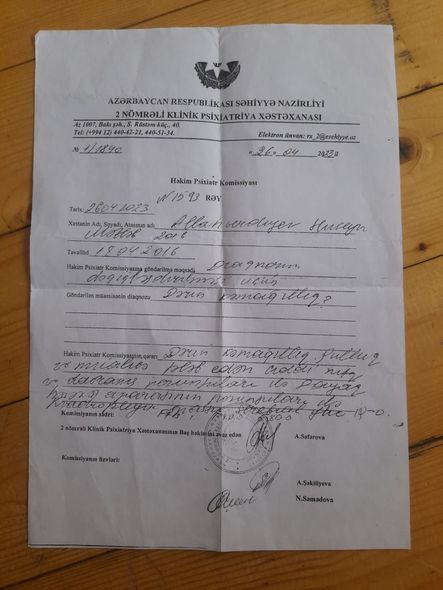 AZƏRBAYCAN RESPUBLİKASI SƏHİYYƏ NAZİRLİYİ
2 NÖMRƏLİ KLİNİK PSİXİATRİYA XƏSTƏXANASI
Az 1007, Bakı şəh., S. Rüstəm küç., 40.
Tel: (+994 12) 440-42-21, 440-51-34.
Elektron ünvan: rs_2@esehiyye.az
№ 1/1840
"26" 04 2023
Həkim Psixiatr Komissiyası
N 1593 RƏY
Tarix: 26041023
Xəstənin Adı, Soyadı, Atasının adı Allahverdiyev Hüseyn
2016
Təvəllüd 18 04 2016
Həkim Psixiatr Komissiyasına göndərilmə məqsədi Diaqnozun
dəqiqləşdirilməsi üçün
Göndərilən müəssisənin diaqnozu Dərin kəmağıllıq?
Həkim Psixiatr Komissiyasının qərarı Dərin kəmağıllıq
və müalicə tələb edən ciddi
və davranış pozuntuları ilə Dayaq
hərəkət aparatının pozuntuları
Komissiyanın sədri:
2 nömrəli Klinik Psixiatriya Xəstəxanasının Baş həkimini əvəz edən
A.Səfərova
Komissiyanın üzvləri:
A.Şəkiliyeva
N.Səmədova